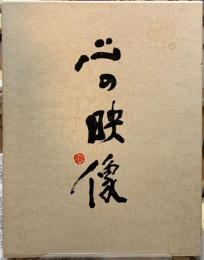 心の映像